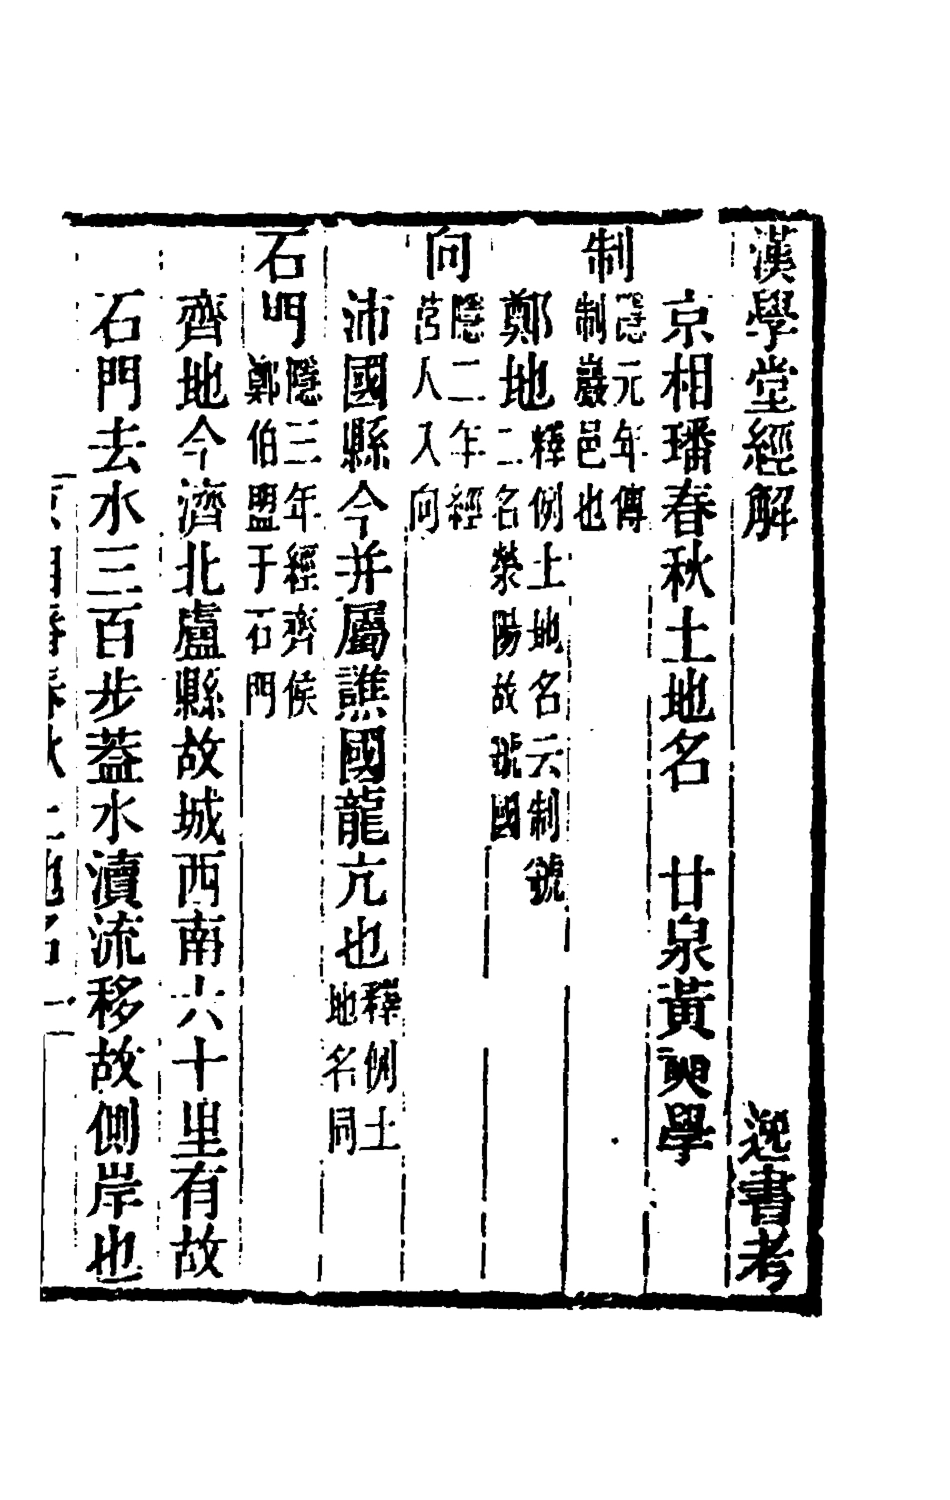 漢學堂經解　逸書考
京相璠春秋土地名　甘泉黃奭學
制隱元年傳制巖邑也
鄭地釋例土地名云制虢二名滎陽故虢國
向隱二年經莒人入向
沛國縣今并屬譙國龍亢也釋例土地名同
石門隱三年經齊侯鄭伯盟于石門
齊地今濟北盧縣故城西南六十里有故
石門去水三百步蓋水瀆流移故側岸也
京相璠春秋土地名　一